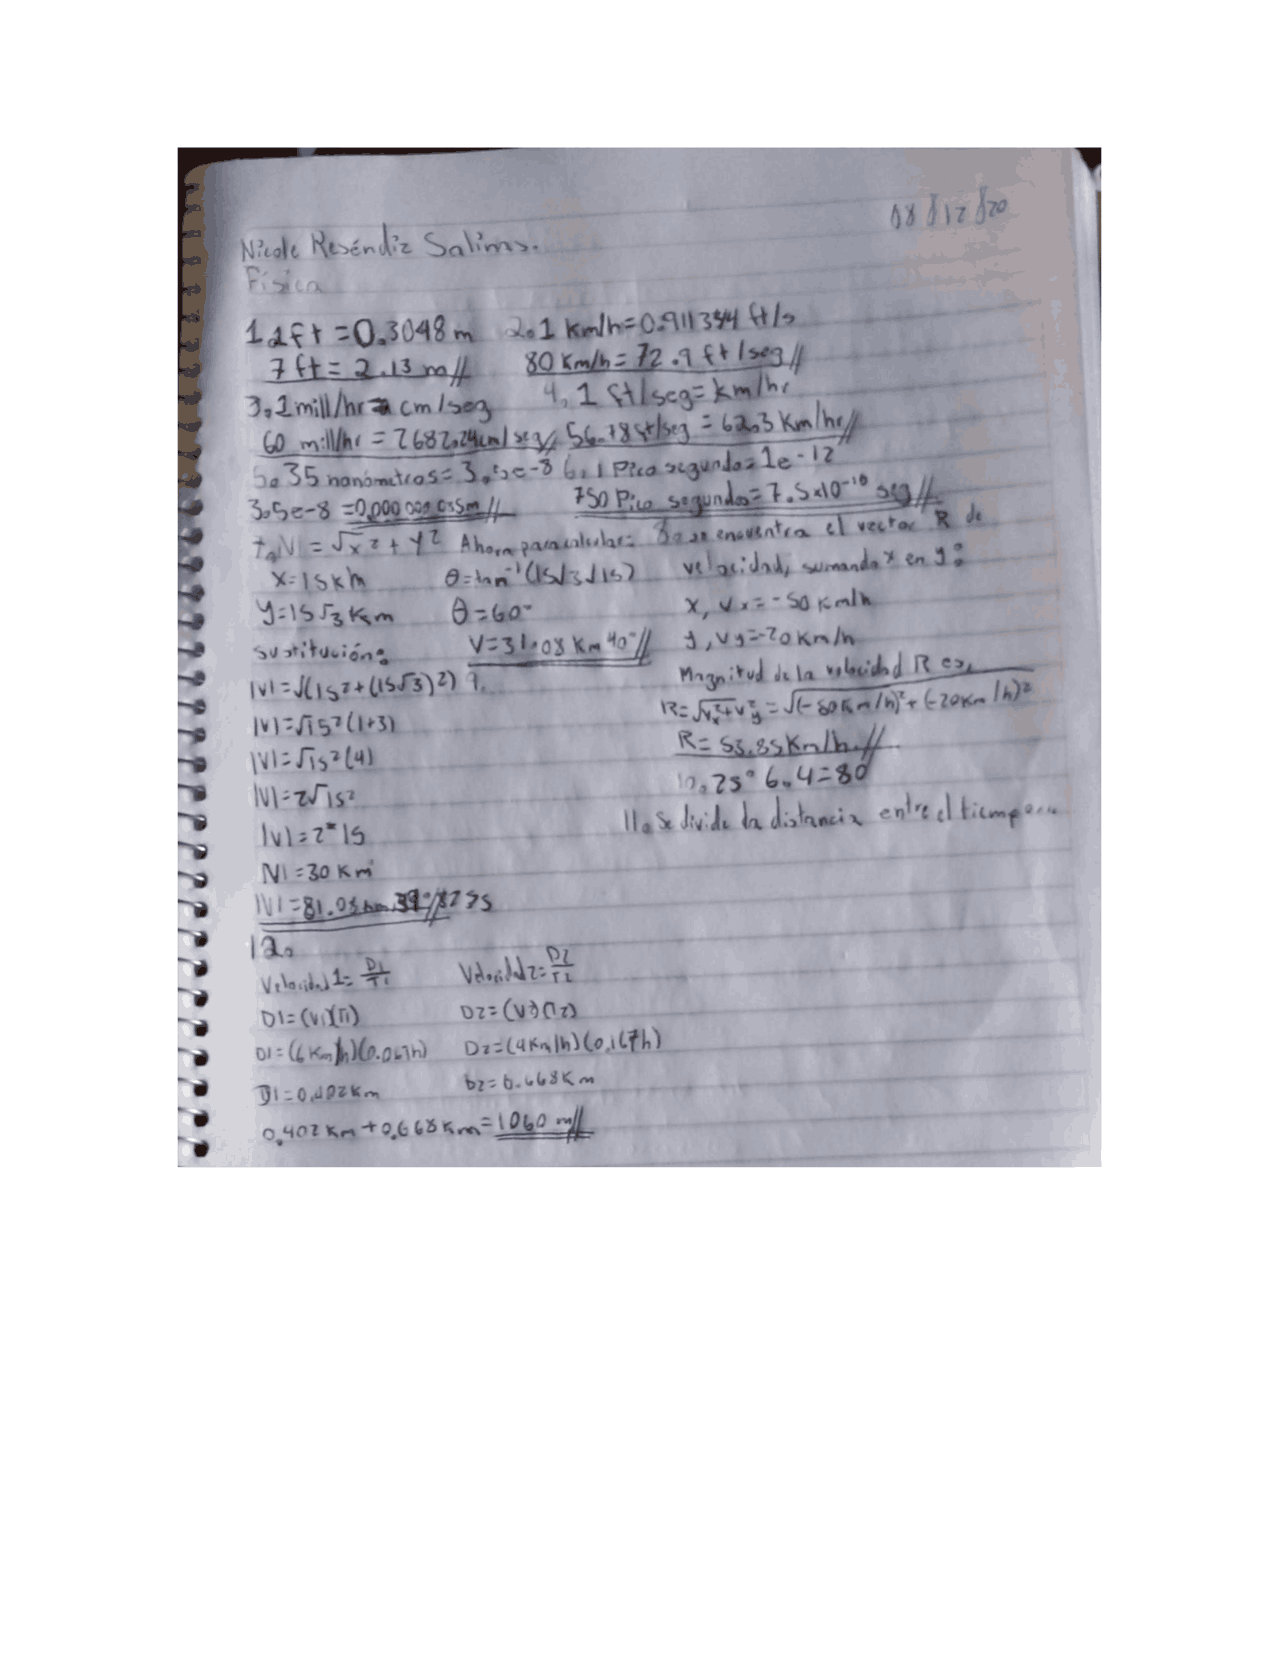 08/12/20
Nicole Reséndiz Salinas.
Física
1. 1ft = 0.3048 m 2. 1 km/h = 0.911344 ft/s
7 ft = 2.13 m// 80 Km/h = 72.9 ft/seg//
3. 1 mill/hr = cm/seg 4. 1 ft/seg = km/hr
60 mill/hr = 2682.24cm/seg// 56.78ft/seg = 62.3 Km/hr//
5. 35 nanómetros = 3.5e-8 6. 1 Pico segundo = 1e-12
3.5e-8 = 0.000 000 035m// 750 Pico segundos = 7.5x10⁻¹⁰ seg//
7. |V| = √x² + y² Ahora para calcular: 8. se encuentra el vector R de
x = 15 km θ = tan⁻¹(15√3/15) velocidad, sumando x en y:
y = 15√3 Km θ = 60° x, Vx = -50 Km/h
sustitución: V = 31.08 Km 40°// y, Vy = -20 Km/h
|V| = √(15² + (15√3)²) 9. Magnitud de la velocidad R es,
|V| = √15²(1+3) R = √Vx² + Vy² = √(-50 Km/h)² + (-20Km/h)²
|V| = √15²(4) R = 53.85 Km/h//
|V| = 2√15² 10. 25° 6.4 = 80
|V| = 2*15 11. Se divide la distancia entre el tiempo
|V| = 30 Km
|V| = 81.08 km 39°//
12.
Velocidad 1 = D1/T1 Velocidad 2 = D2/T2
D1 = (V1)(T1) D2 = (V2)(T2)
D1 = (6 Km/h)(0.067h) D2 = (4Km/h)(0.167h)
D1 = 0.402 Km D2 = 0.668 Km
0.402 Km + 0.668 Km = 1060 m//